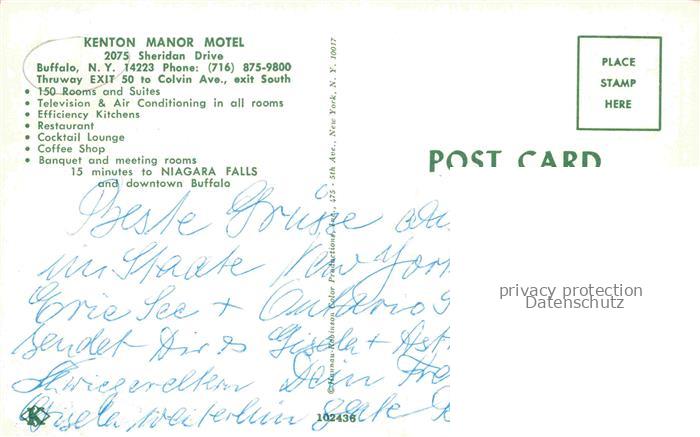 KENTON MANOR MOTEL
2075 Sheridan Drive
Buffalo, N. Y. 14223 Phone: (716) 875-9800
Thruway EXIT 50 to Colvin Ave., exit South
• 150 Rooms and Suites
• Television & Air Conditioning in all rooms
• Efficiency Kitchens
• Restaurant
• Cocktail Lounge
• Coffee Shop
• Banquet and meeting rooms
15 minutes to NIAGARA FALLS
and downtown Buffalo
Beste Grüsse
im Staate New York
Erie See + Ontario
sendet Dir Gisela +
Schwiegereltern Dein
Gisela weiterhin gute
K
102436
©Hannau-Robinson Color Productions, Inc., 475 - 5th Ave., New York, N. Y. 10017
PLACE
STAMP
HERE
POST CARD
privacy protection
Datenschutz